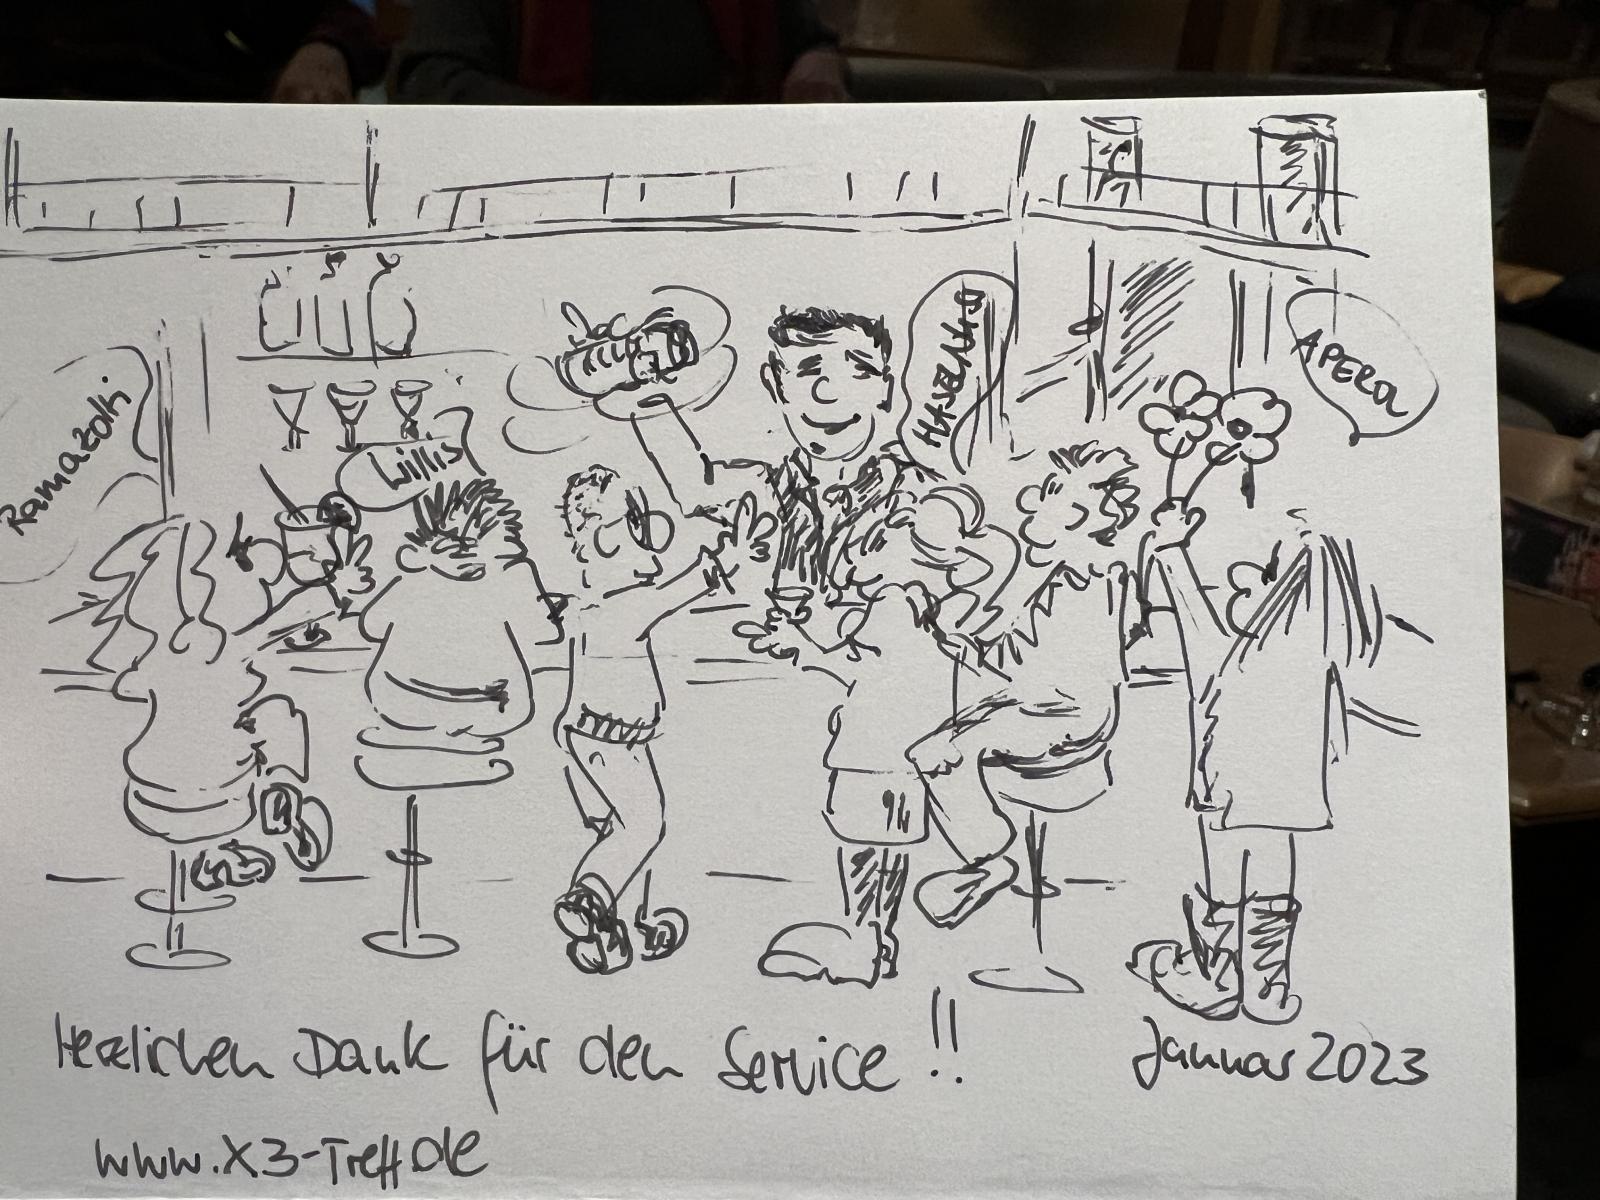 Ramazotti
Willis
HASELNUSS
APEROL
Herzlichen Dank für den Service !!
Januar 2023
www.X3-Treff.de